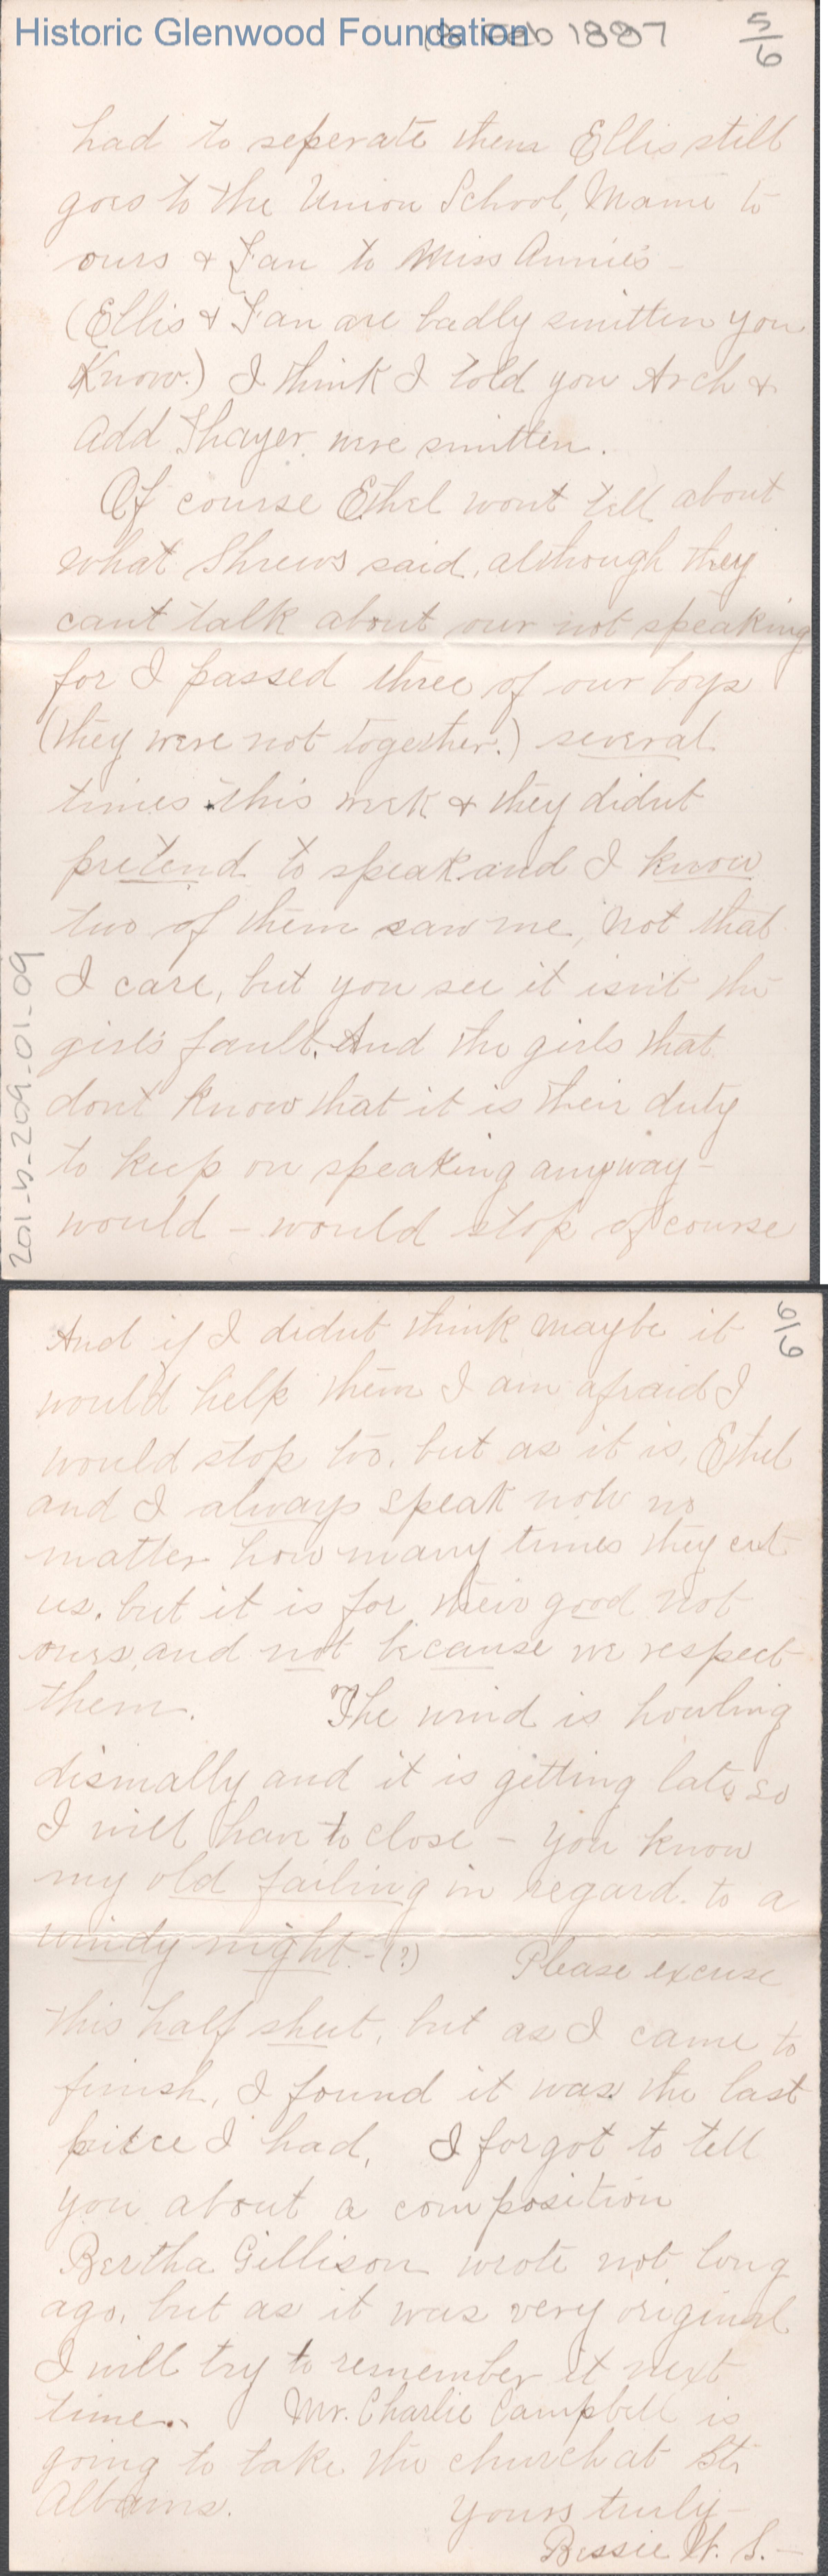 Historic Glenwood Foundation
18 Feb 1887
5/6
had to seperate them Ellis still
goes to the Union School, Mame to
ours & Fan to Miss Annie's -
(Ellis & Fan are badly smitten you
Know.) I think I told you Arch &
Add Thayer were smitten.
Of course Ethel wont tell about
what Shrews said, although they
cant talk about our not speaking
for I passed three of our boys
(they were not together.) several
times this week & they didnt
pretend to speak and I know
two of them saw me, not that
I care, but you see it isn't the
girls fault. And the girls that
dont know that it is their duty
to keep on speaking anyway -
would - would stop of course
201-5-209-01-09
6/6
And if I didnt think maybe it
would help them I am afraid I
would stop too, but as it is, Ethel
and I always speak now no
matter how many times they cut
us, but it is for their good not
ours, and not because we respect
them. The wind is howling
dismally and it is getting late so
I will have to close - you know
my old failing in regard to a
windy night - (?) Please excuse
this half sheet, but as I came to
finish, I found it was the last
peice I had, I forgot to tell
you about a composition
Bertha Gillison wrote not long
ago, but as it was very original
I will try to remember it next
time. Mr. Charlie Campbell is
going to take the church at St.
Albans.
Yours truly -
Bessie W. S. -